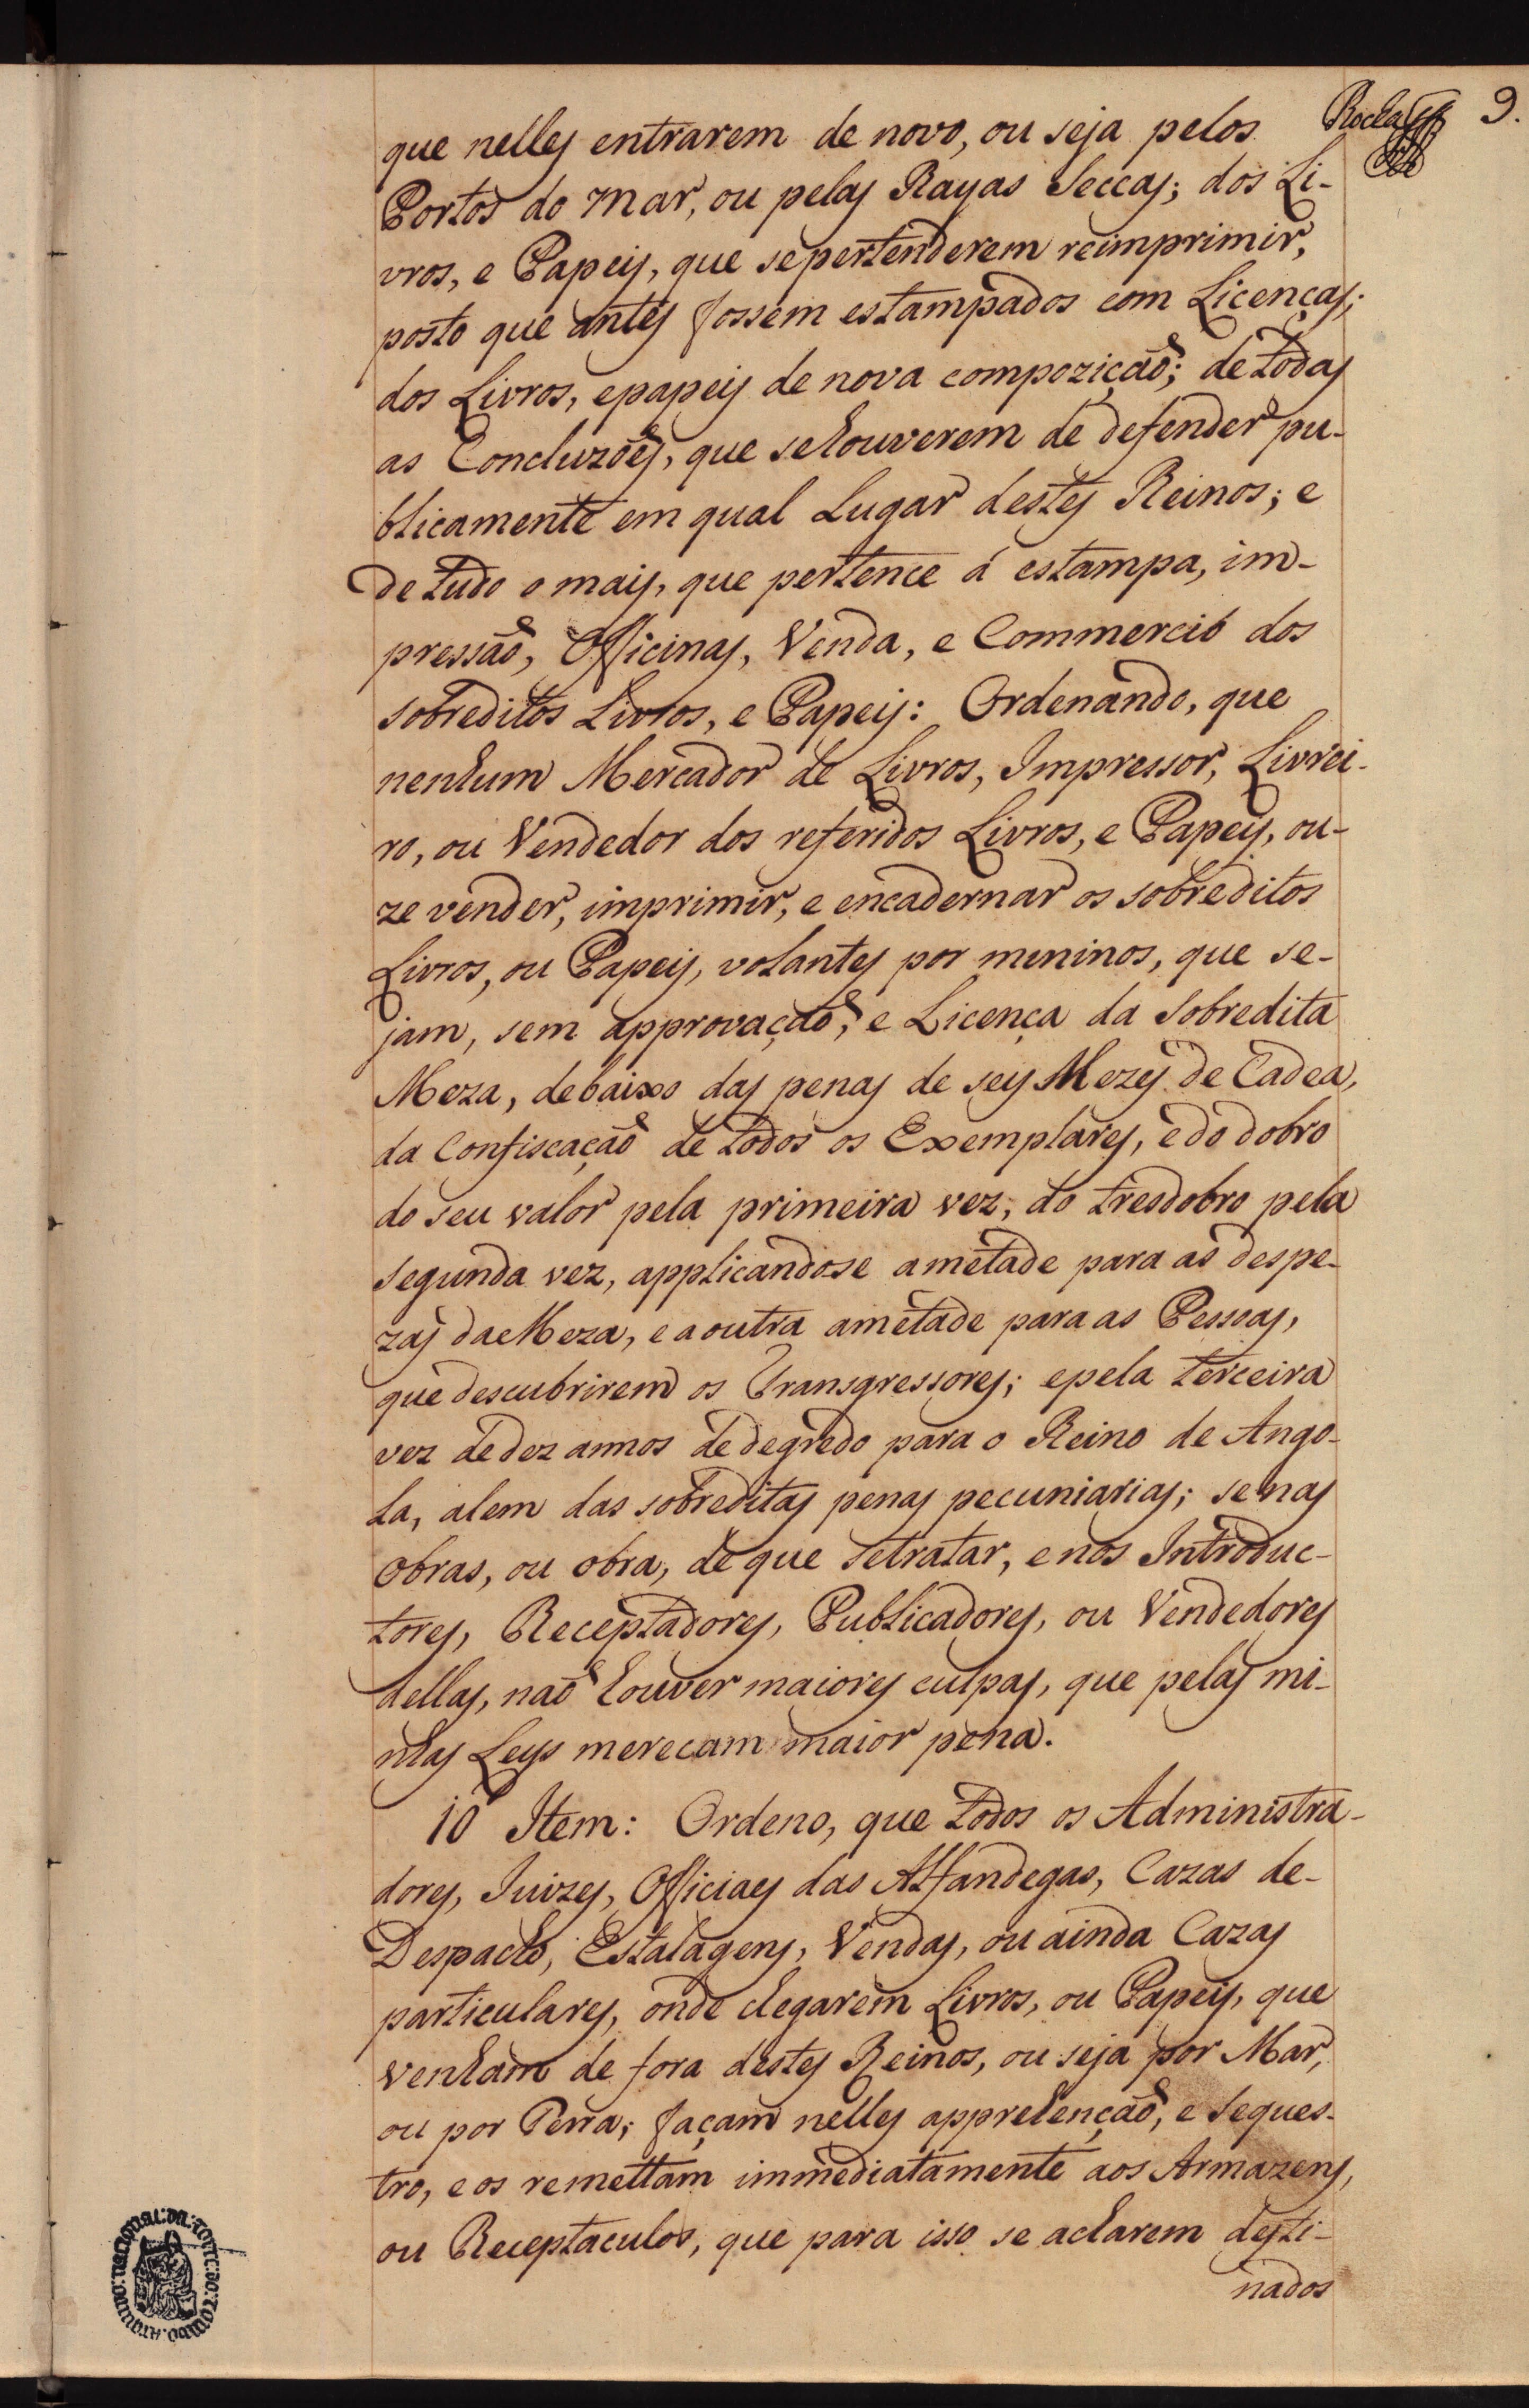 Rocha 9.
que nelles entrarem de novo, ou seja pelos
Portos do Mar, ou pelas Rayas Seccas; dos Li-
vros, e Papeis, que sepertenderem reimprimir,
posto que antes fossem estampados com Licenças;
dos Livros, epapeis de nova compozição; de todas
as Concluzões, que sehouverem de defender pu-
blicamente em qual Lugar destes Reinos; e
de tudo o mais, que pertence á estampa, im-
pressão, Officinas, Venda, e Commercio dos
sobreditos Livros, e Papeis: Ordenando, que
nenhum Mercador de Livros, Impressor, Livrei-
ro, ou Vendedor dos referidos Livros, e Papeis, ou-
ze vender, imprimir, e encadernar os sobreditos
Livros, ou Papeis, volantes por meninos, que se-
jam, sem approvação, e Licença da Sobredita
Meza, debaixo das penas de seis Mezes de Cadea,
da Confiscação de todos os Exemplares, e do dobro
do seu valor pela primeira vez; do tresdobro pela
segunda vez, applicandose ametade para as despe-
zas da Meza, e a outra ametade para as Pessoas,
que descubrirem os Transgressores; epela terceira
vez de dez annos de degredo para o Reino de Ango-
la, alem das sobreditas penas pecuniarias; se nas
obras, ou obra, de que setratar, e nos Introduc-
tores, Receptadores, Publicadores, ou Vendedores
dellas, não houver maiores culpas, que pelas mi-
nhas Leys mereçam maior pena.
10 Item: Ordeno, que todos os Administra-
dores, Juizes, Officiaes das Alfandegas, Cazas de-
Despacho, Estalagens, Vendas, ou ainda Cazas
particulares, onde chegarem Livros, ou Papeis, que
venham de fora destes Reinos, ou seja por Mar,
ou por Terra; façam nelles apprehenção, e Seques-
tro, e os remettam immediatamente aos Armazens,
ou Receptaculos, que para isso se acharem desti-
nados
ARQUIVO NACIONAL DA TORRE DO TOMBO